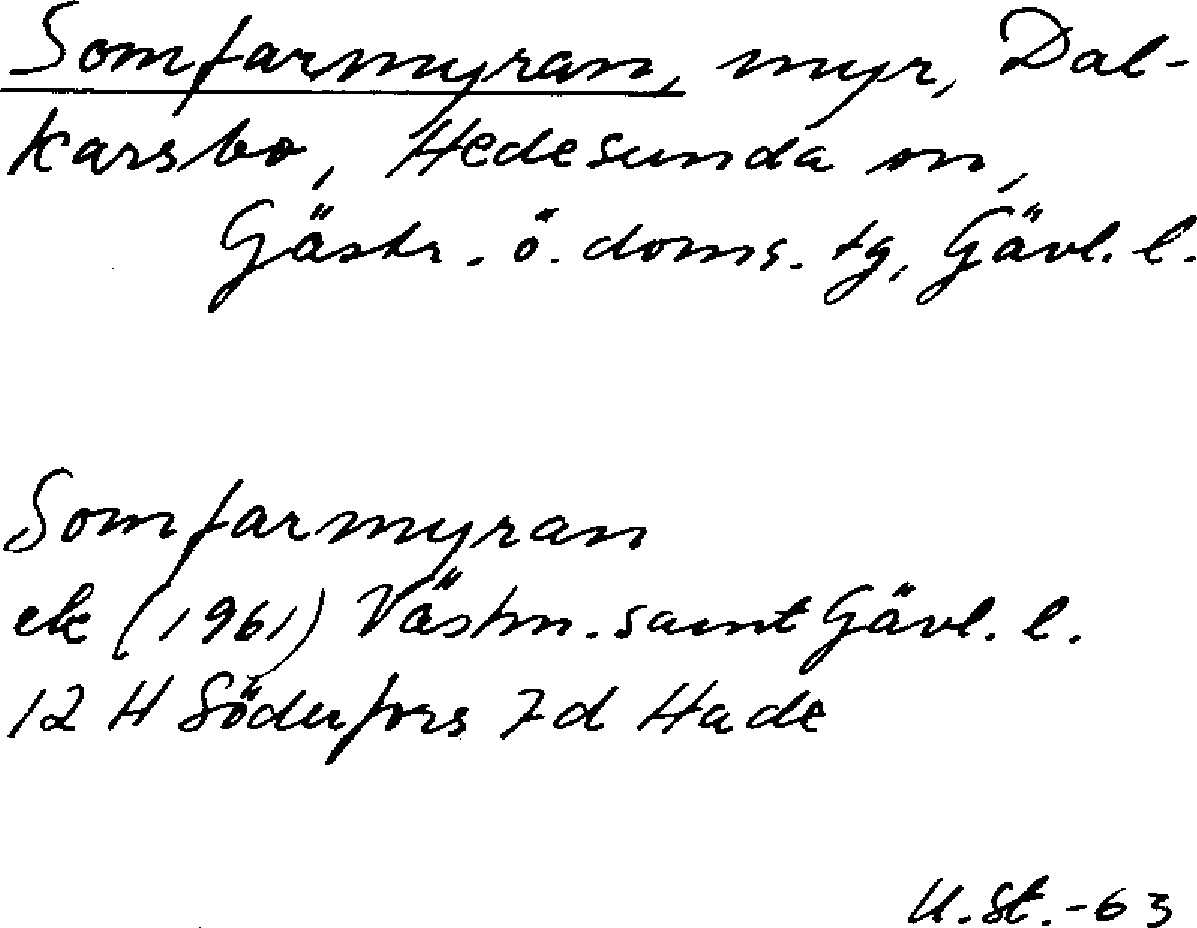 Somfarmyran, myr, Dal-
karsbo, Hedesunda sn,
Gästr. ö. doms. tg, Gävl. l.
Somfarmyran
ek (1961) Västm. samt Gävl. l.
12 H Söderfors 7d Hade
U.St.-63